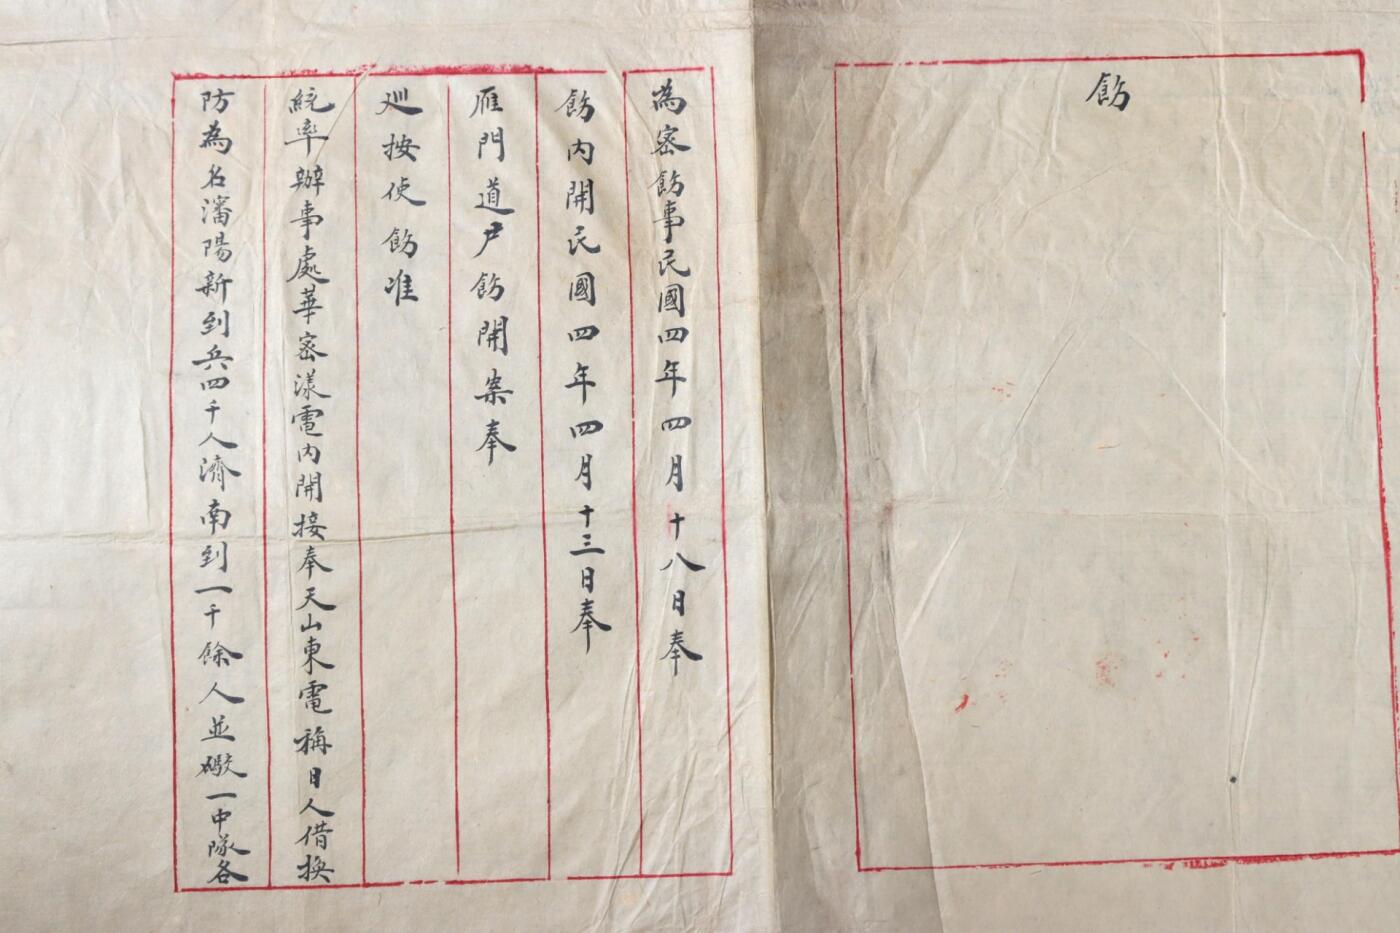 飭
為密飭事民國四年四月十八日奉
飭內開民國四年四月十三日奉
雁門道尹飭開案奉
巡按使飭准
統率辦事處華密漾電內開接奉天山東電稱日人借換
防為名瀋陽新到兵四千人濟南到一千餘人並礮一中隊各